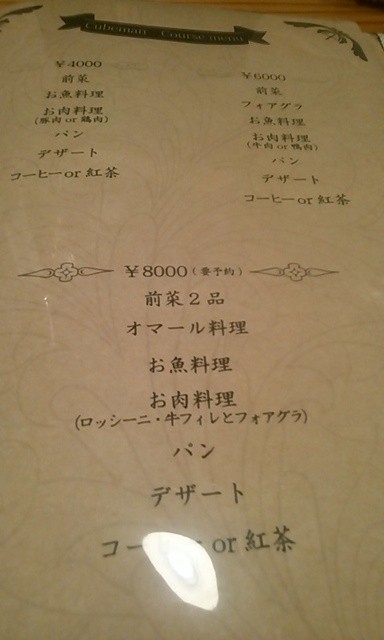 Cubeman Course menu
¥4000
前菜
お魚料理
お肉料理
(豚肉 or 鶏肉)
パン
デザート
コーヒー or 紅茶
¥6000
前菜
フォアグラ
お魚料理
お肉料理
(牛肉 or 鴨肉)
パン
デザート
コーヒー or 紅茶
¥8000 (要予約)
前菜2品
オマール料理
お魚料理
お肉料理
(ロッシーニ・牛フィレとフォアグラ)
パン
デザート
or 紅茶